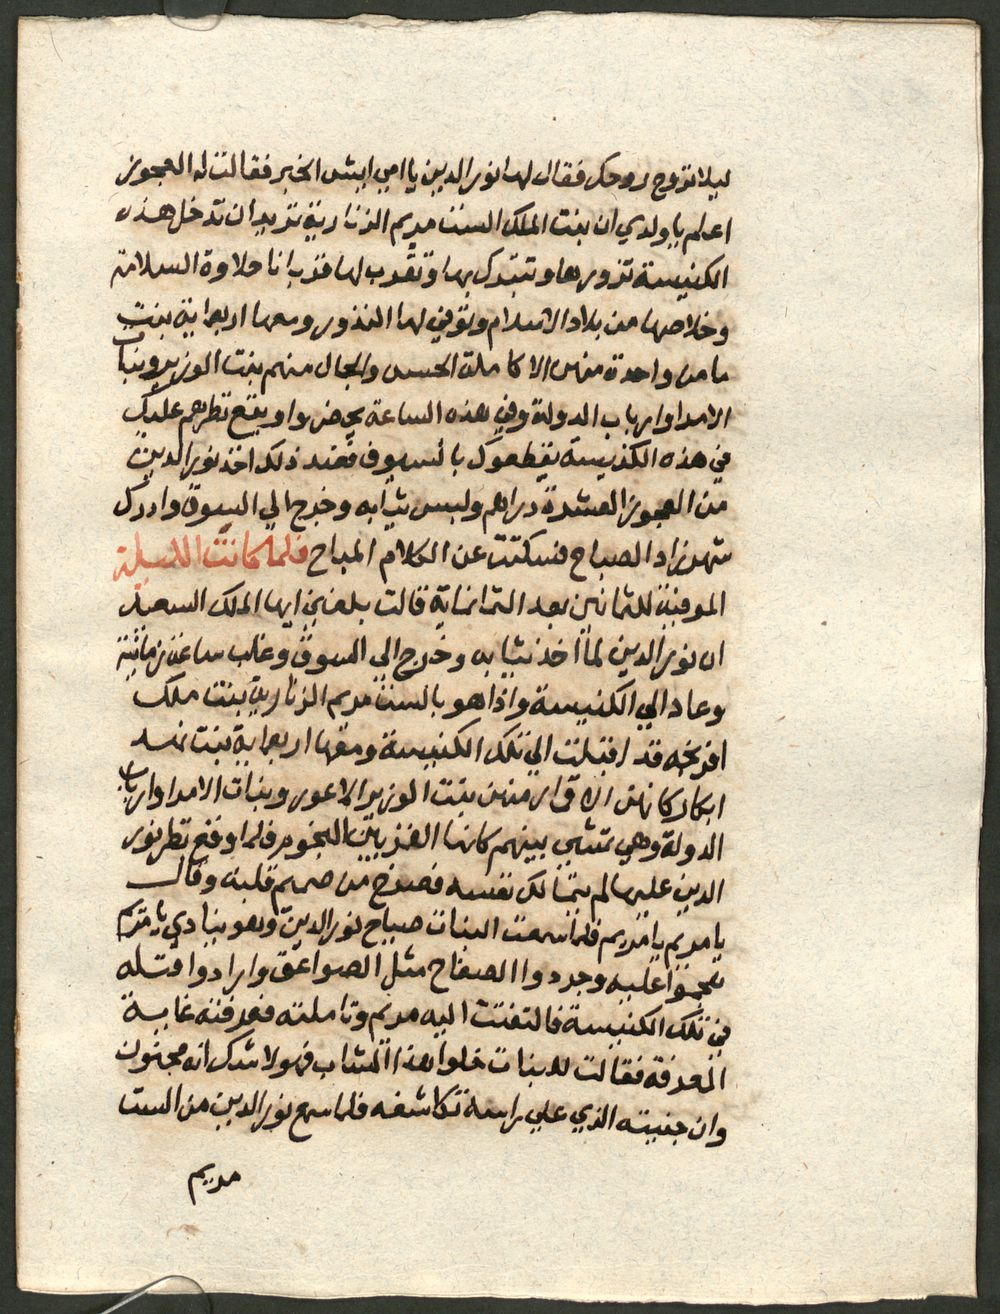 ليلا تروح روحك فقال لها نور الدين يا امي ايش الخبر فقالت له العجوز
اعلم يا ولدي ان بنت الملك الست مريم الزنارية تريد ان تدخل هذه
الكنيسة تزورها وتتبرك بها وتقرب لها قربانا حلاوة السلامة
وخلاصها من بلاد الاسلام وتوفي لها النذور ومعها اربعماية بنت
ما من واحدة منهن الا كاملة الحسن والجمال منهم بنت الوزير وبنات
الامرا وارباب الدولة وفي هذه الساعة يحضروا ويقع نظرهم عليك
في هذه الكنيسة يقطعوك بالسيوف فعند ذلك اخذ نور الدين
من العجوز العشرة دراهم ولبس ثيابه وخرج الي السوق وادرك
شهرزاد الصباح فسكتت عن الكلام المباح فلما كانت الليلة
الموفية للثمانين بعد الثمانماية قالت بلغني ايها الملك السعيد
ان نور الدين لما اخذ ثيابه وخرج الي السوق وغاب ساعة زمانية
وعاد الي الكنيسة واذا هو بالست مريم الزنارية بنت ملك
افرنجه قد اقبلت الي تلك الكنيسة ومعها اربعماية بنت نهد
ابكار كانهن الاقمار منهن بنت الوزير الاعور وبنات الامرا وارباب
الدولة وهي تمشي بينهم كانها القمر بين النجوم فلما وقع نظر نور
الدين عليها لم يتمالك نفسه فصرخ من صميم قلبه وقال
يا مريم يا مريم فلما سمعت البنات صياح نور الدين وهو ينادي يا مريم
هجموا عليه وجردوا الصفاح مثل الصواعق وارادوا قتله
في تلك الكنيسة فالتفتت اليه مريم وتاملته فعرفته غاية
المعرفة فقالت للبنات خلوا هذا الشاب فهو لا شك انه مجنون
وان جنيته الذي علي راسه تكاشفه فلما سمع نور الدين من الست
مريم